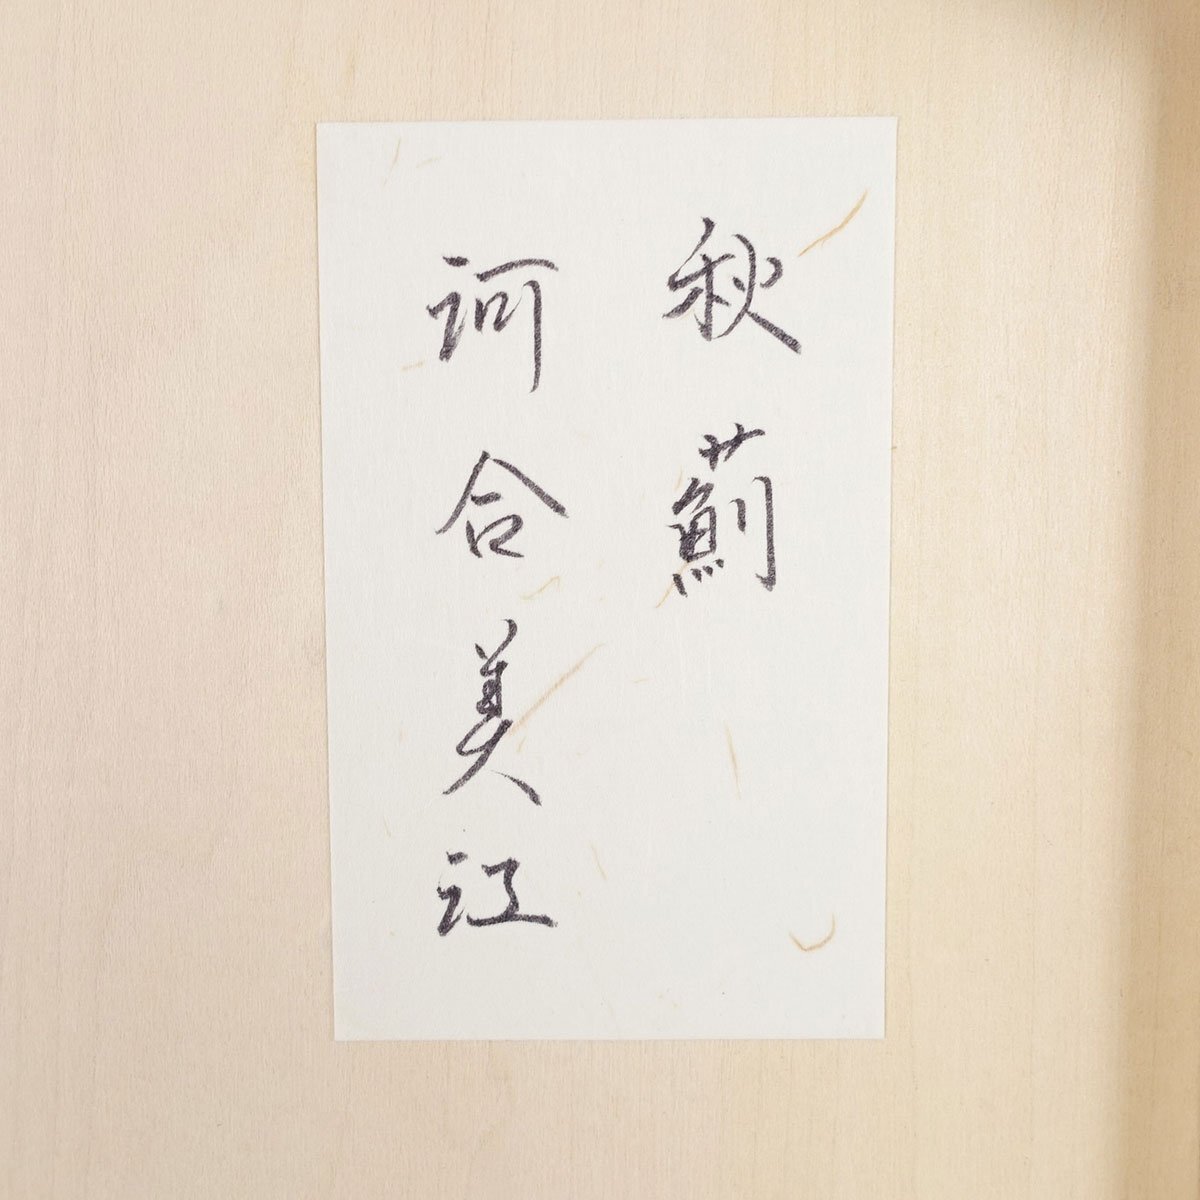 秋薊
河合美江